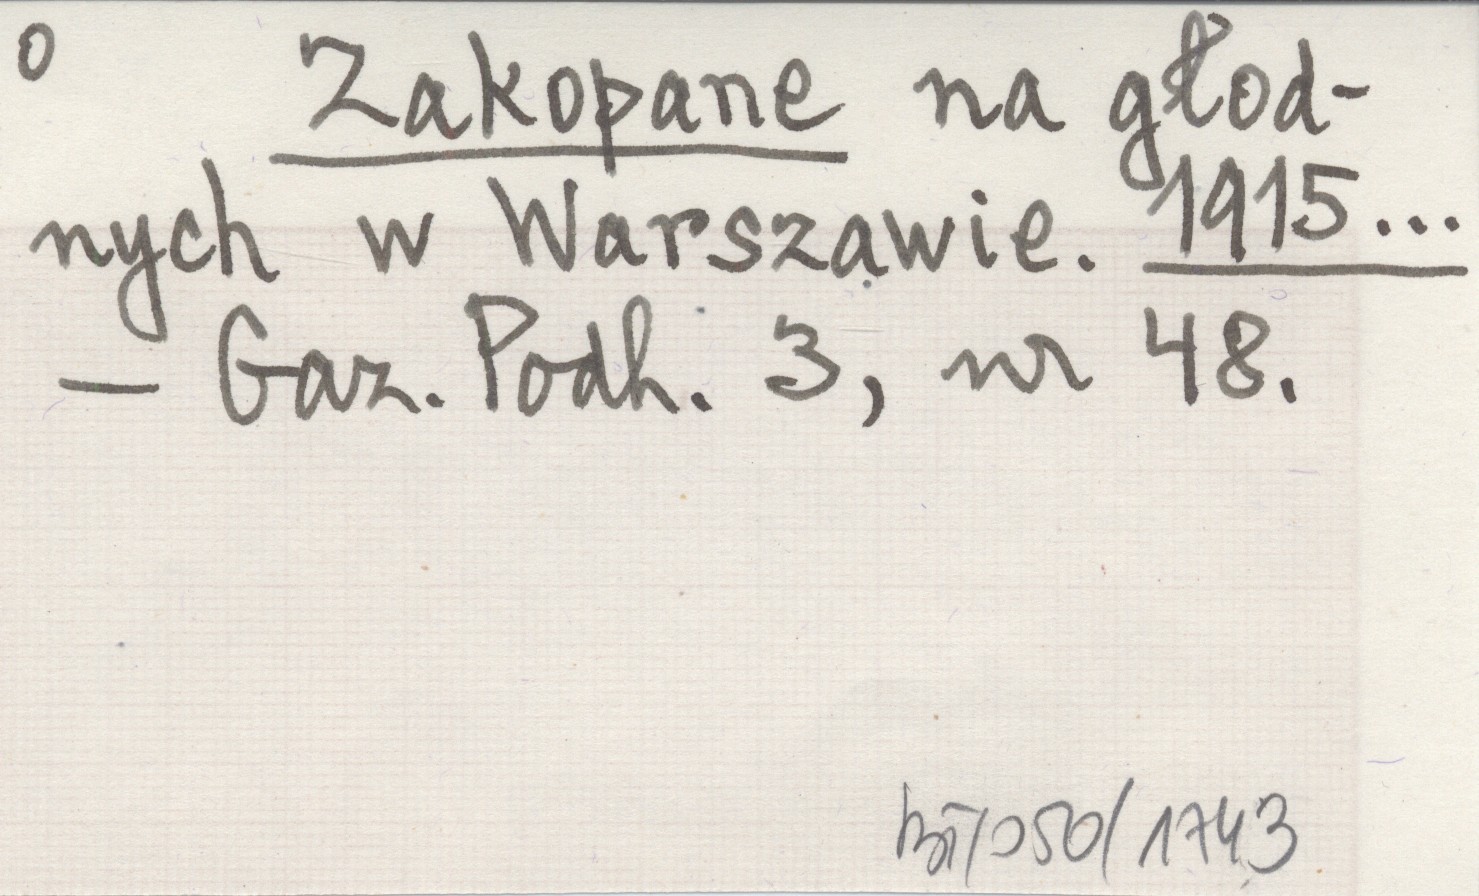 o
Zakopane na głod-
nych w Warszawie. 1915...
— Gaz. Podh. 3, nr 48.
/050/1743